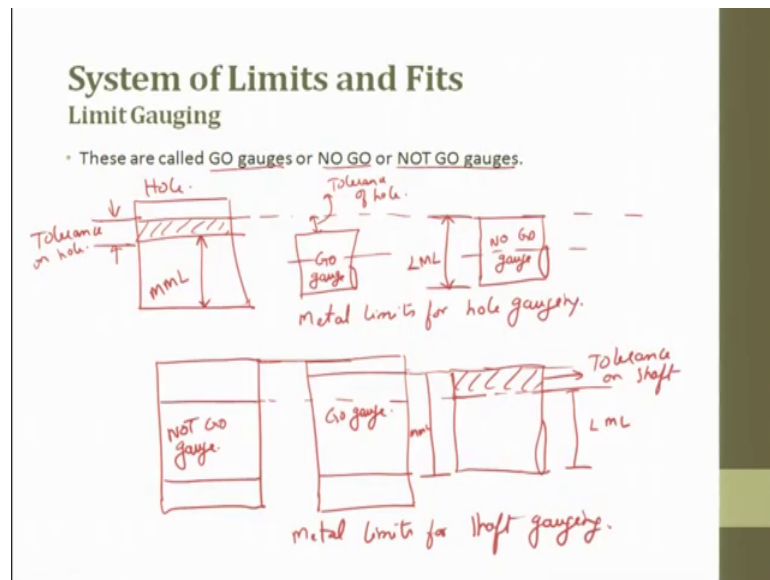 System of Limits and Fits
Limit Gauging
• These are called GO gauges or NO GO or NOT GO gauges.
Hole.
Tolerance
of hole.
Tolerance
on hole.
MML
GO
gauge
LML
NO GO
gauge
Metal limits for hole gauging.
NOT GO
gauge.
Go gauge.
MML
Tolerance
on shaft
LML
Metal limits for shaft gauging.